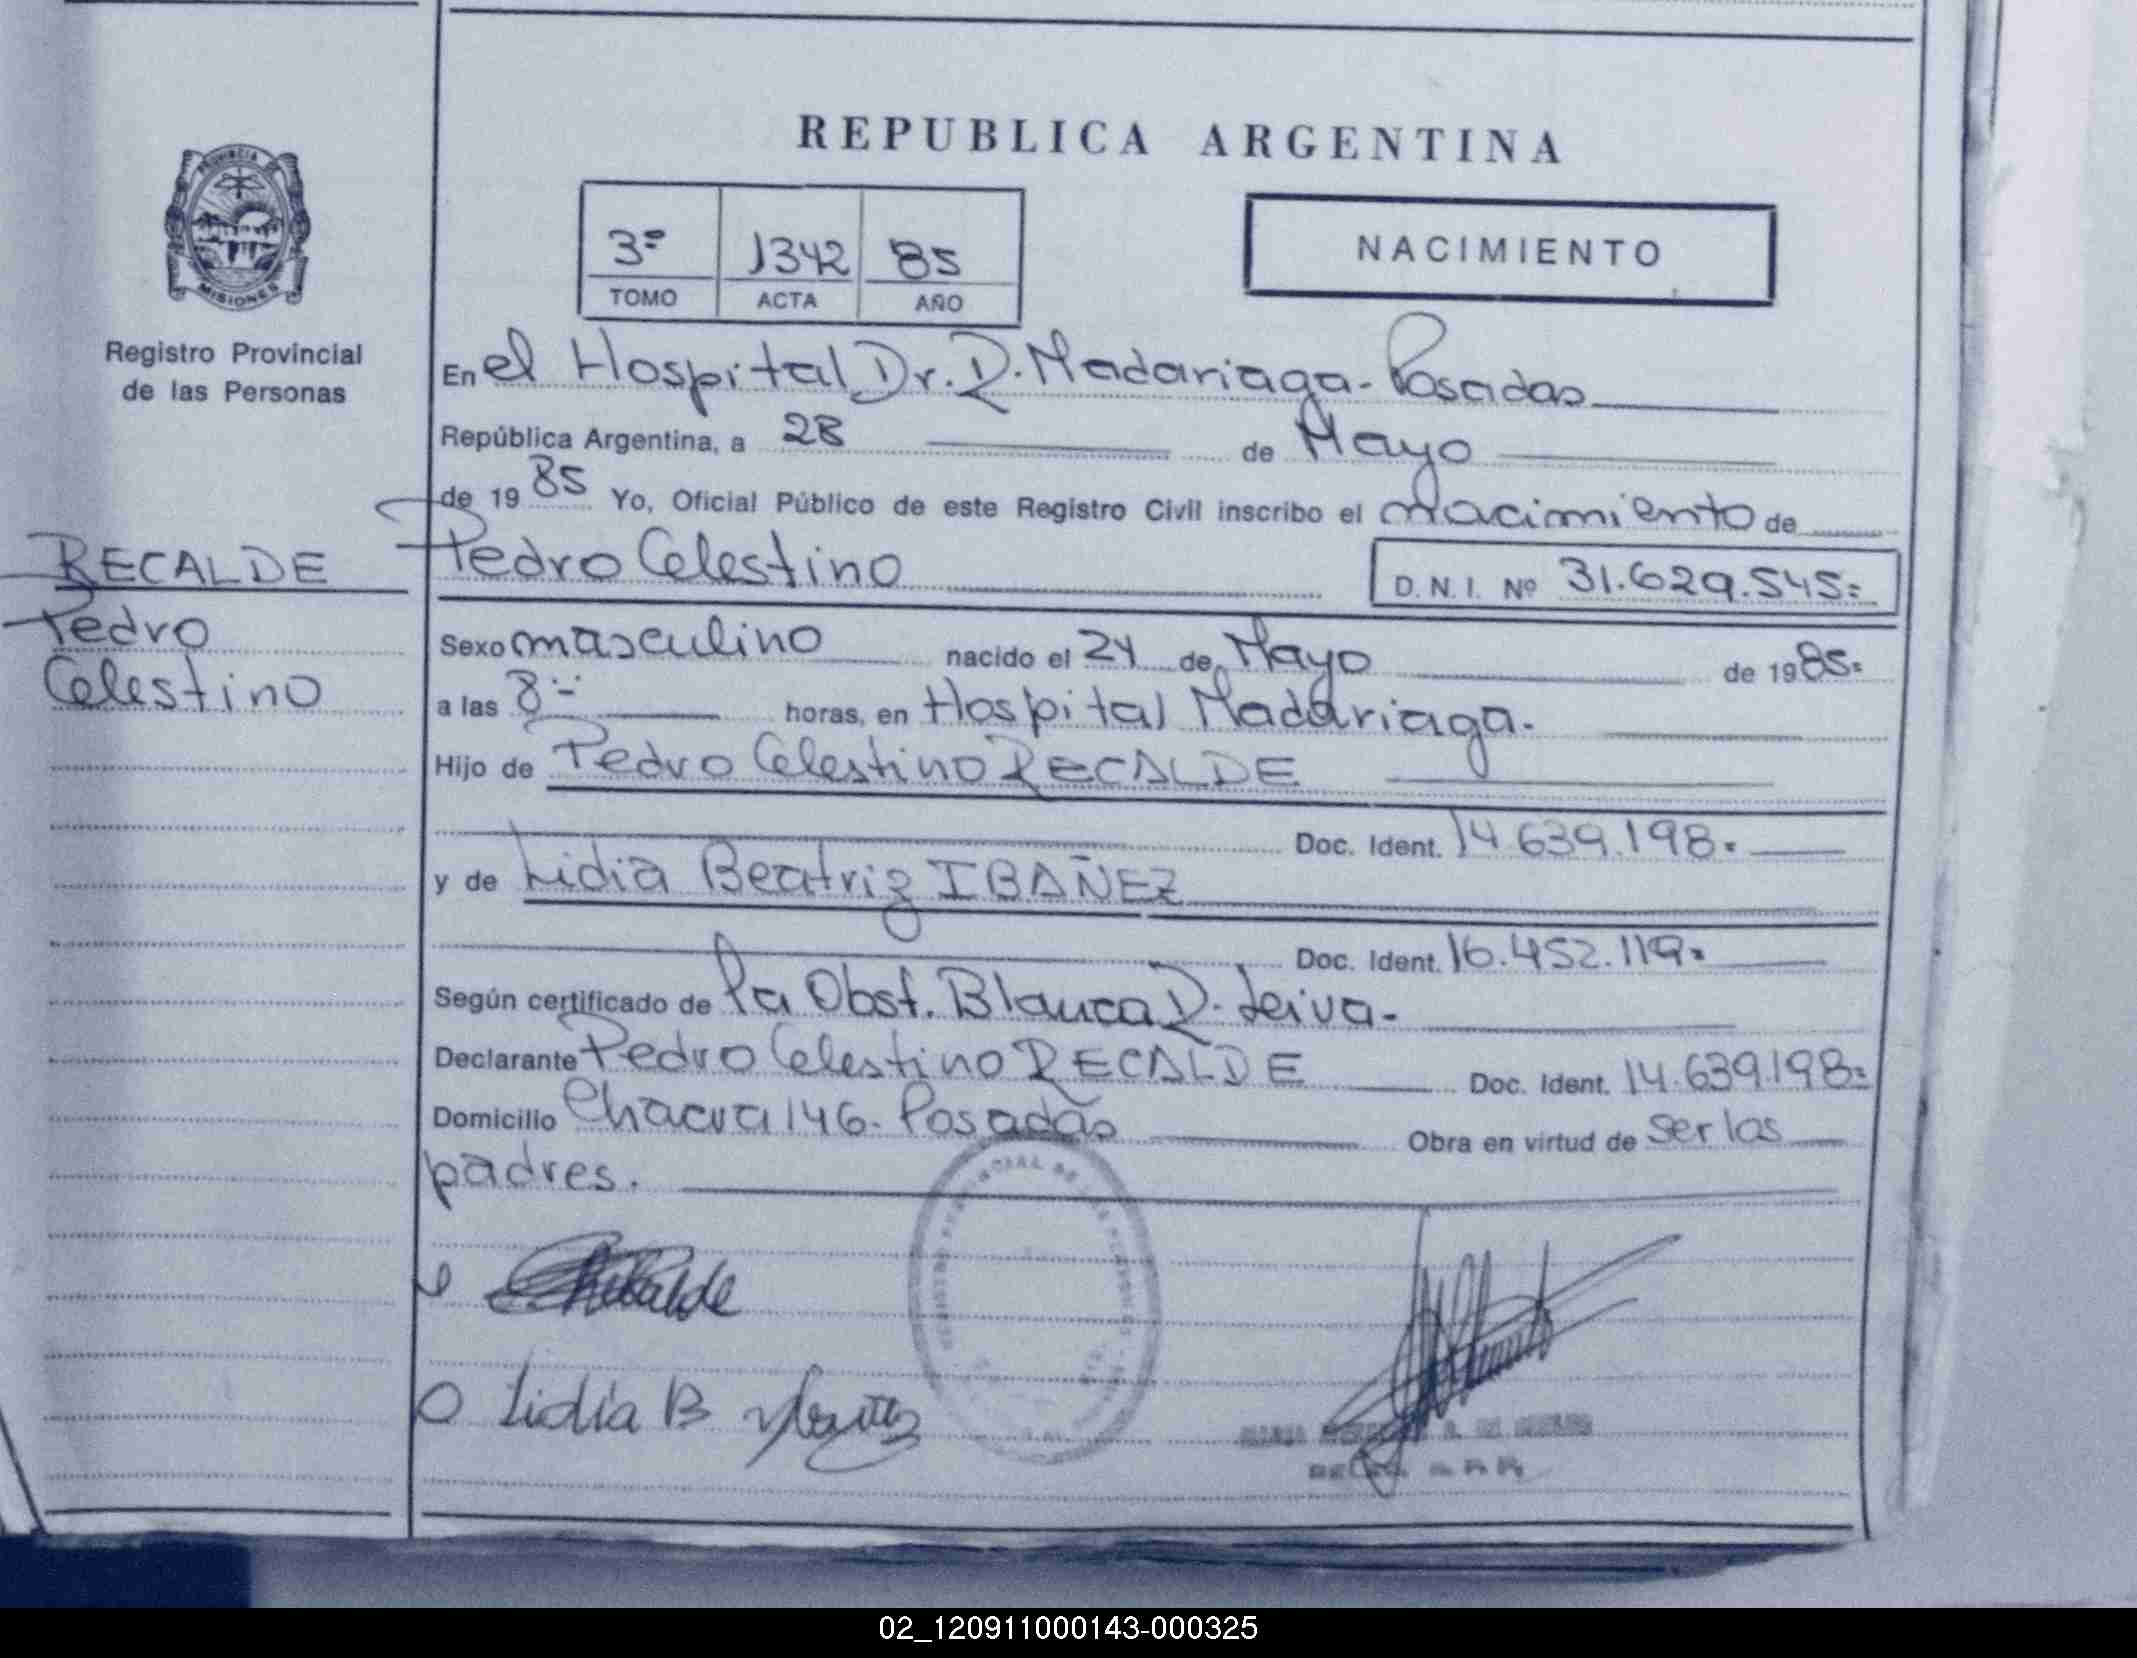 REPUBLICA ARGENTINA
PROVINCIA DE
MISIONES
Registro Provincial
de las Personas
3º 1342 85
TOMO ACTA AÑO
NACIMIENTO
En el Hospital Dr. R. Madariaga - Posadas
República Argentina, a 28 de Mayo
de 1985 Yo, Oficial Público de este Registro Civil inscribo el nacimiento de
RECALDE
Pedro
Celestino
Pedro Celestino
D.N.I. Nº 31.629.545=
Sexo masculino nacido el 24 de Mayo de 1985=
a las 8 horas, en Hospital Madariaga.
Hijo de Pedro Celestino RECALDE
Doc. Ident. 14.639.198.
y de Lidia Beatriz IBAÑEZ
Doc. Ident. 16.452.119.
Según certificado de la Obst. Blanca R. Leiva-
Declarante Pedro Celestino RECALDE Doc. Ident. 14.639.198=
Domicilio Chacra 146. Posadas Obra en virtud de ser los
padres.
Recalde
Lidia B
02_120911000143-000325